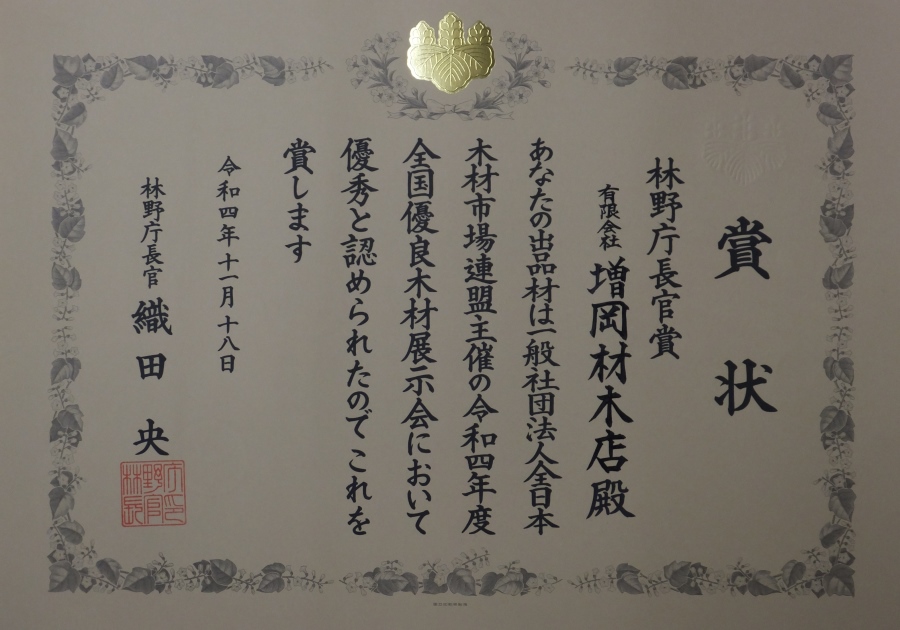 賞状
林野庁長官賞
有限会社 増岡材木店殿
あなたの出品材は一般社団法人全日本
木材市場連盟主催の令和四年度
全国優良木材展示会において
優秀と認められたのでこれを
賞します
令和四年十一月十八日
林野庁長官 織田央